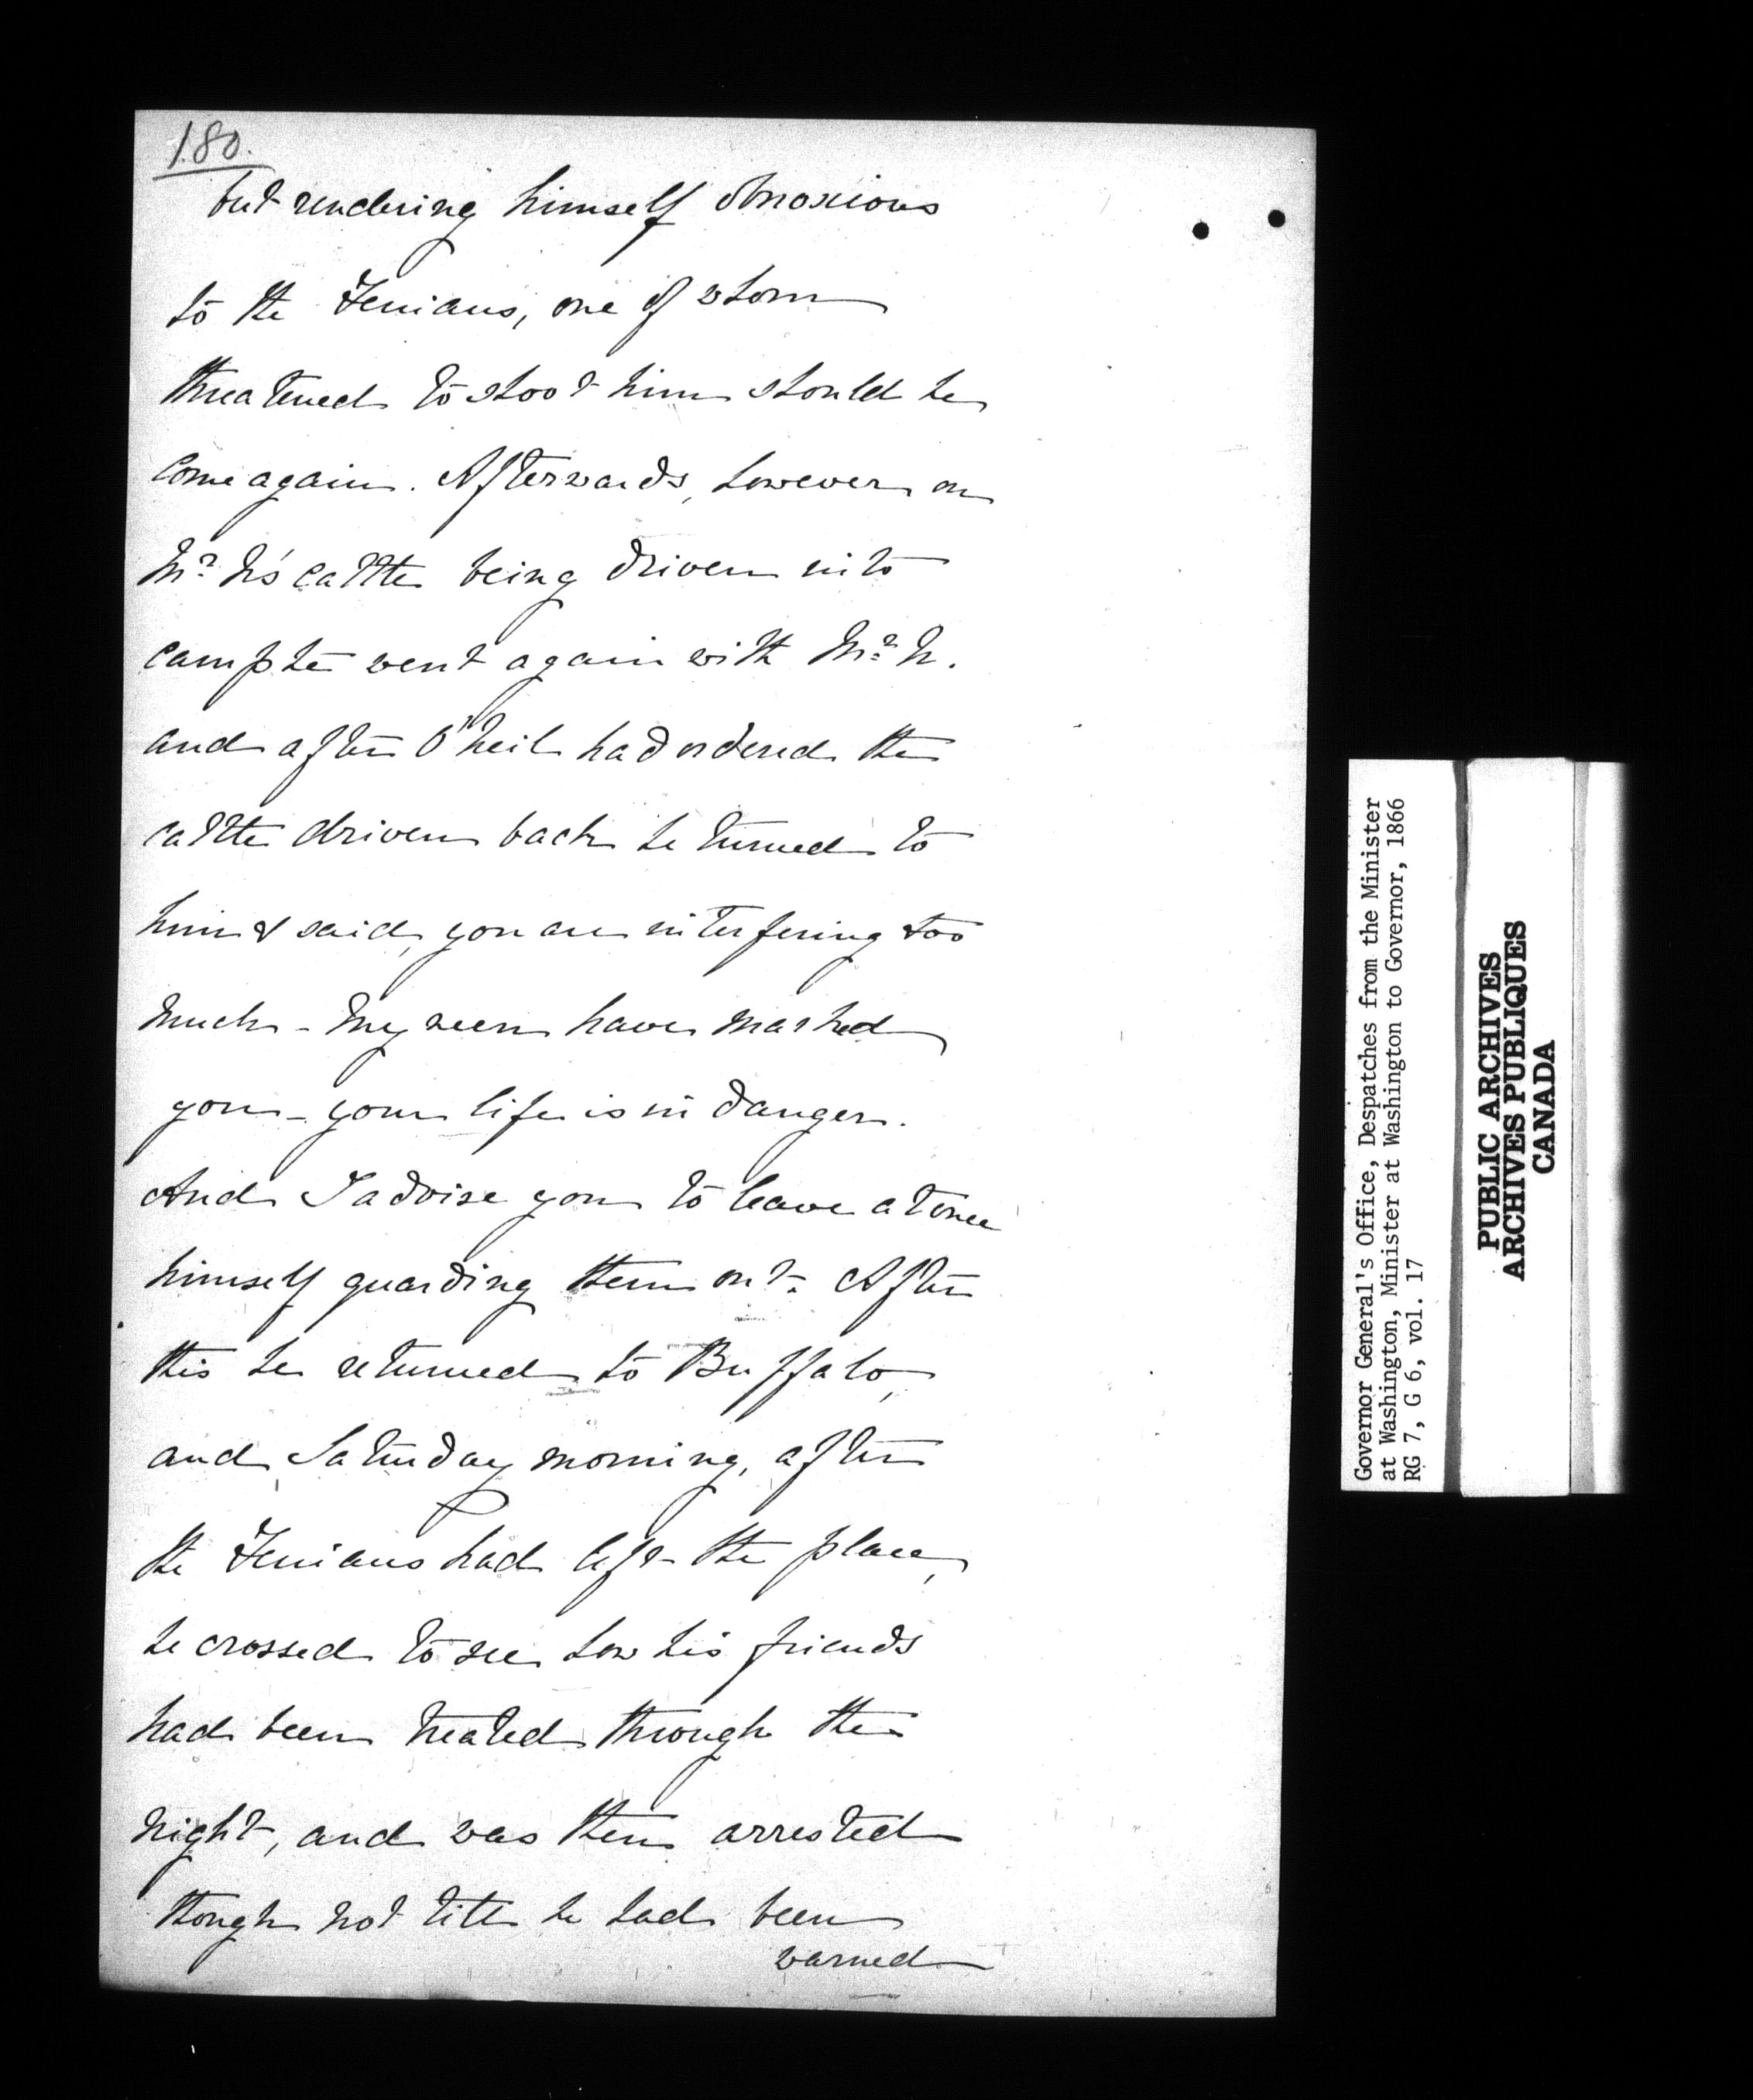 180.
but rendering himself obnoxious
to the Fenians, one of whom
threatened to shoot him should he
come again. Afterwards, however on
Mr. N's cattle being driven into
camp he went again with Mr. N.
and after O'Neil had ordered the
cattle driven back he turned to
him & said, you are interfering too
much - My men have marked
you - your life is in danger.
And I advise you to leave at once
himself guarding them out. After
this he returned to Buffalo,
and Saturday morning, after
the Fenians had left the place,
he crossed to see how his friends
had been treated through the
night, and was then arrested
though not till he had been
warned
Governor General's Office, Despatches from the Minister
at Washington, Minister at Washington to Governor, 1866
RG 7, G 6, vol. 17
PUBLIC ARCHIVES
ARCHIVES PUBLIQUES
CANADA